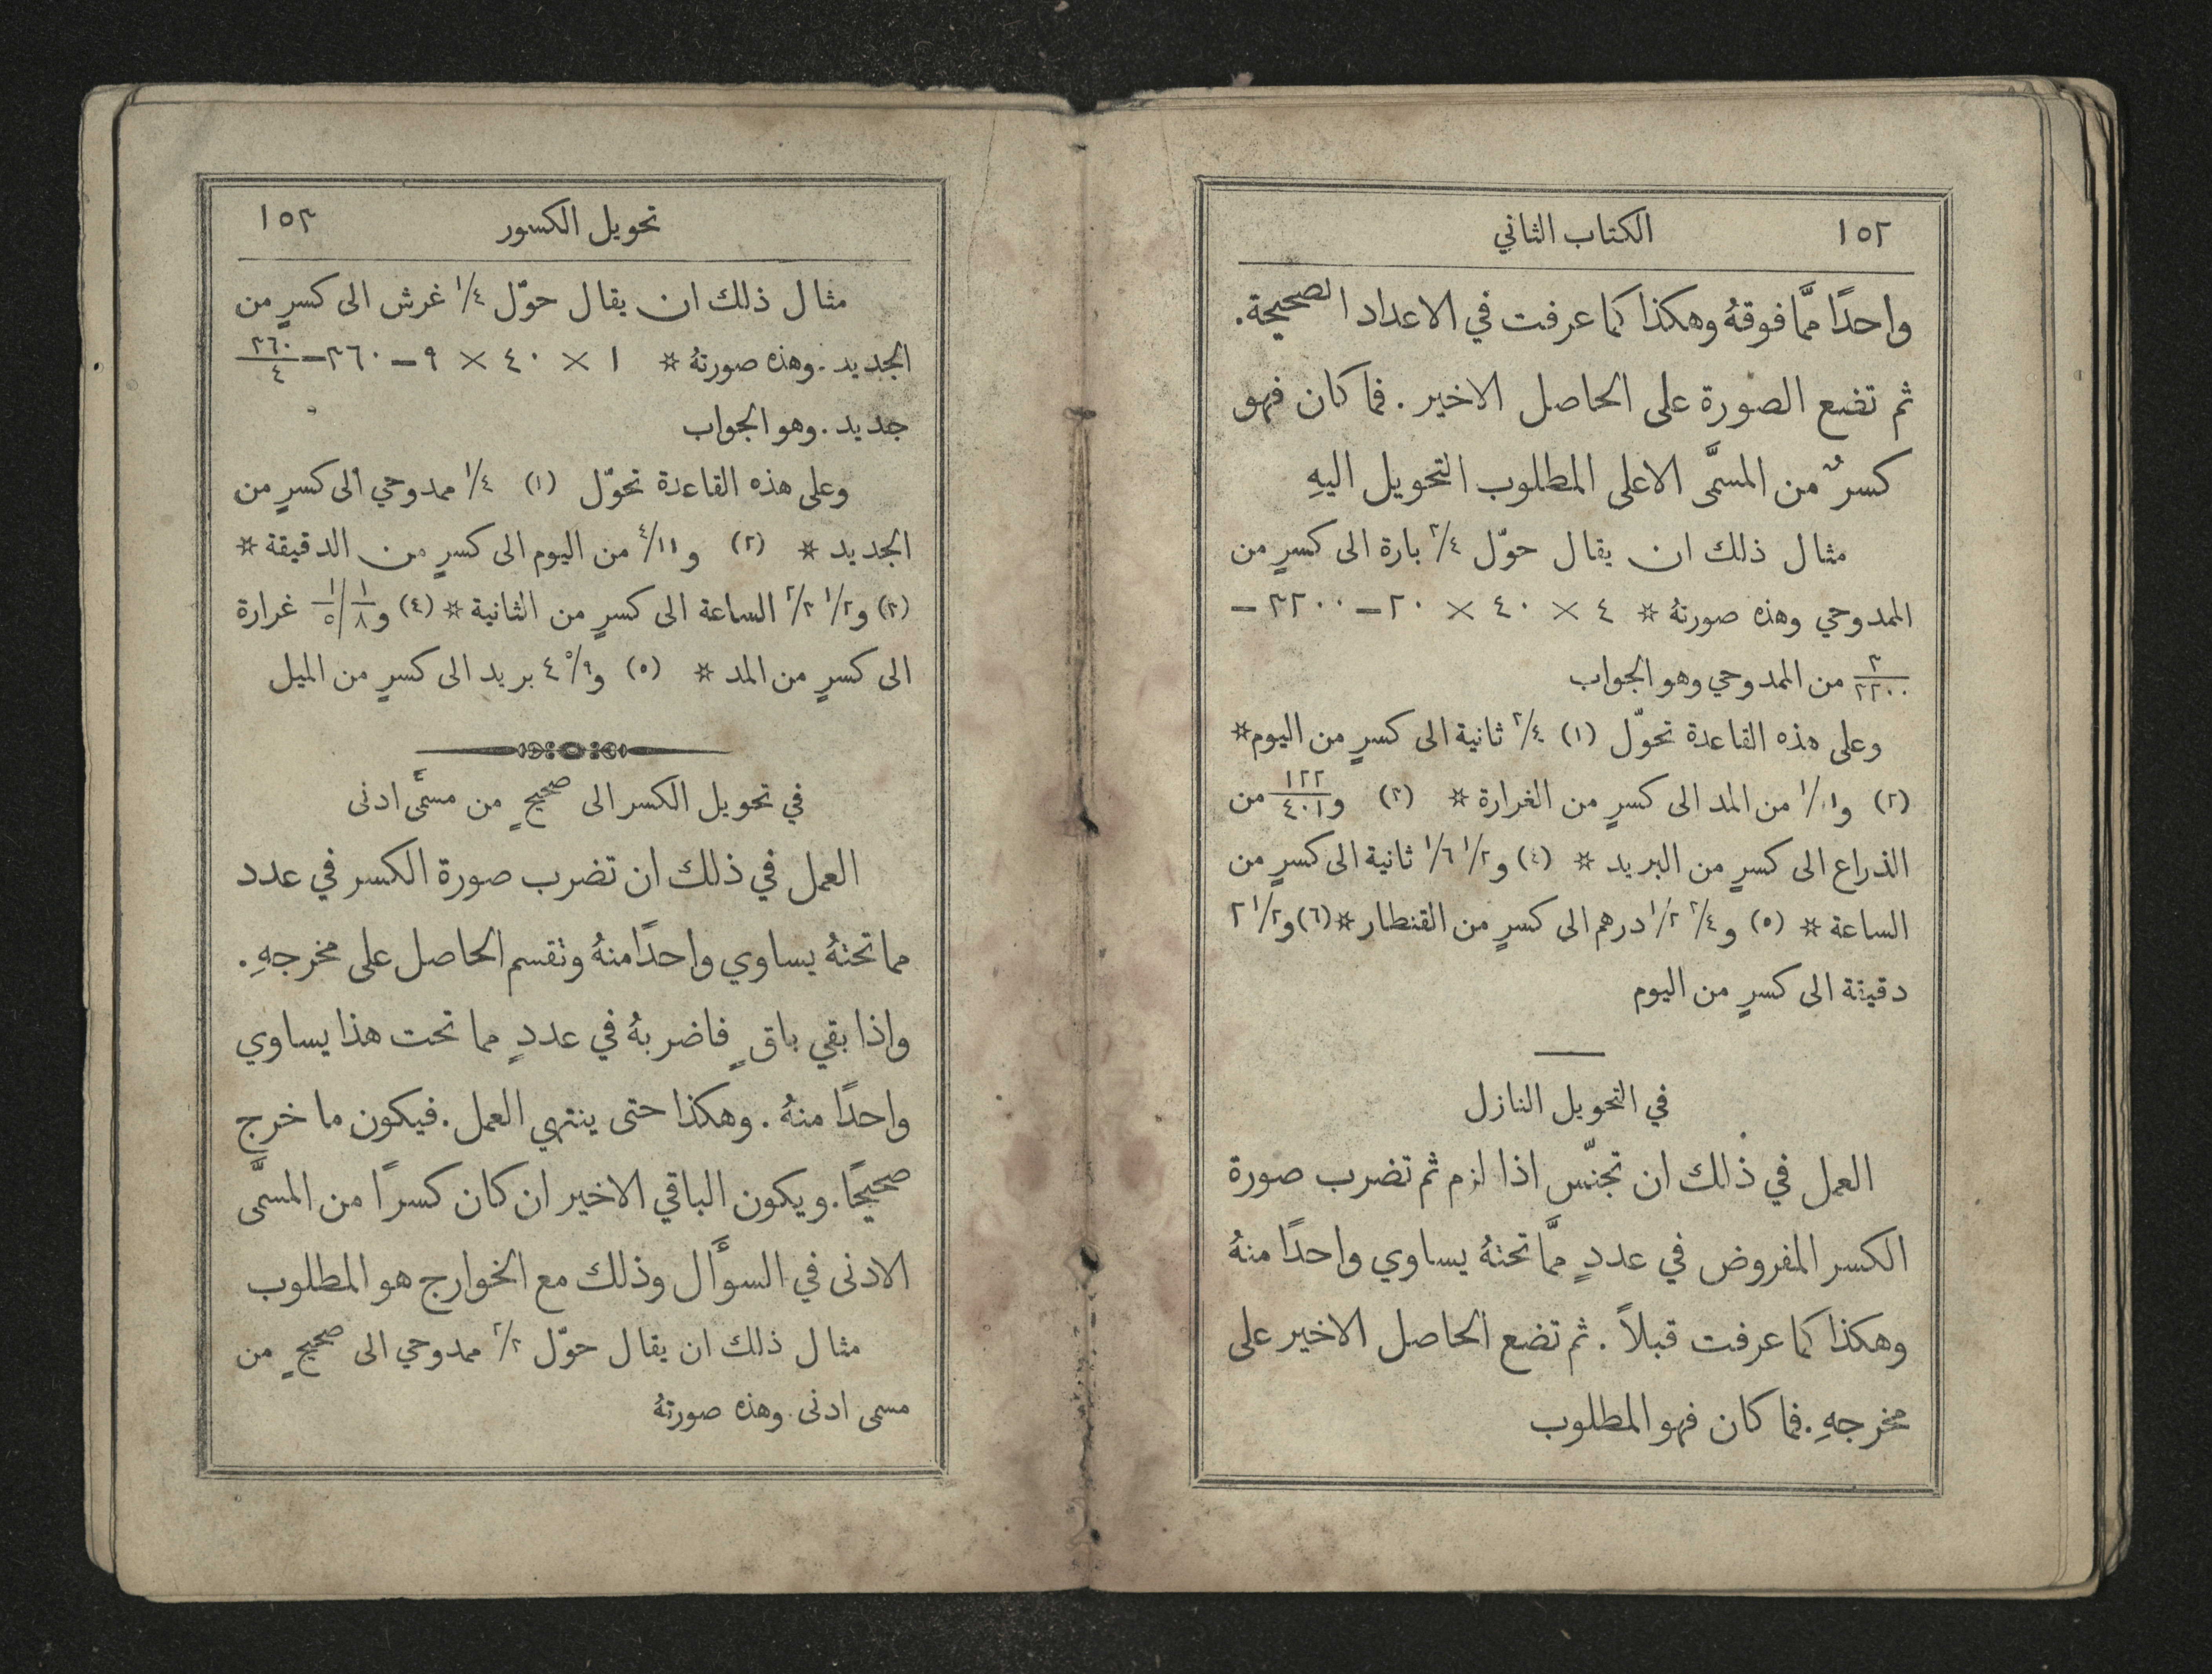 ١٥٢ الكتاب الثاني
واحدًا ممَّا فوقهُ وهكذا كما عرفت في الاعداد الصحيحة.
ثم تضع الصورة على الحاصل الاخير. فما كان فهو
كسرٌ من المسمَّى الاعلى المطلوب التحويل اليهِ
مثال ذلك ان يقال حوّل ٣/٤ بارة الى كسرٍ من
الممدوحي وهذه صورتهُ * ٤ × ٤٠ × ٢٠ – ٣٢٠٠ –
٣/٣٢٠٠ من الممدوحي وهو الجواب
وعلى هذه القاعدة تحوّل (١) ٣/٤ ثانية الى كسرٍ من اليوم *
(٢) و١/١٠ من المد الى كسرٍ من الغرارة * (٣) و١٢٣/٤٠١ من
الذراع الى كسرٍ من البريد * (٤) و١/٢ ١/٦ ثانية الى كسرٍ من
الساعة * (٥) و٣/٤ ١/٢ درهم الى كسرٍ من القنطار * (٦) و١/٢ ٢
دقيقة الى كسرٍ من اليوم
في التحويل النازل
العمل في ذلك ان تجنّس اذا لزم ثم تضرب صورة
الكسر المفروض في عددٍ ممَّا تحتهُ يساوي واحدًا منهُ
وهكذا كما عرفت قبلاً. ثم تضع الحاصل الاخير على
مخرجهِ. فما كان فهو المطلوب
تحويل الكسور ١٥٣
مثال ذلك ان يقال حوّل ١/٤ غرش الى كسرٍ من
الجديد. وهذه صورتهُ * ١ × ٤٠ × ٩ – ٣٦٠ – ٣٦٠/٤
جديد. وهو الجواب
وعلى هذه القاعدة تحوّل (١) ١/٤ ممدوحي الى كسرٍ من
الجديد * (٢) و٤/١١ من اليوم الى كسرٍ من الدقيقة *
(٣) و١/٢ ٢/٣ الساعة الى كسرٍ من الثانية * (٤) و١/٨ / ١/٥ غرارة
الى كسرٍ من المد * (٥) و٥/٩ ٤ بريد الى كسرٍ من الميل
في تحويل الكسر الى صحيحٍ من مسمًّى ادنى
العمل في ذلك ان تضرب صورة الكسر في عدد
مما تحتهُ يساوي واحدًا منهُ وتقسم الحاصل على مخرجهِ.
واذا بقي باقٍ فاضربهُ في عددٍ مما تحت هذا يساوي
واحدًا منهُ. وهكذا حتى ينتهي العمل. فيكون ما خرج
صحيحًا. ويكون الباقي الاخير ان كان كسرًا من المسمَّى
الادنى في السوَّال وذلك مع الخوارج هو المطلوب
مثال ذلك ان يقال حوّل ٢/٣ ممدوحي الى صحيحٍ من
مسمى ادنى. وهذه صورتهُ